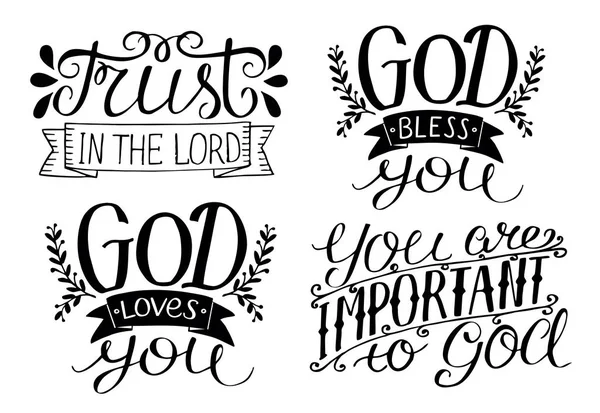 Trust
IN THE LORD
GOD
BLESS
you
GOD
LOVES
you
You are
IMPORTANT
to God